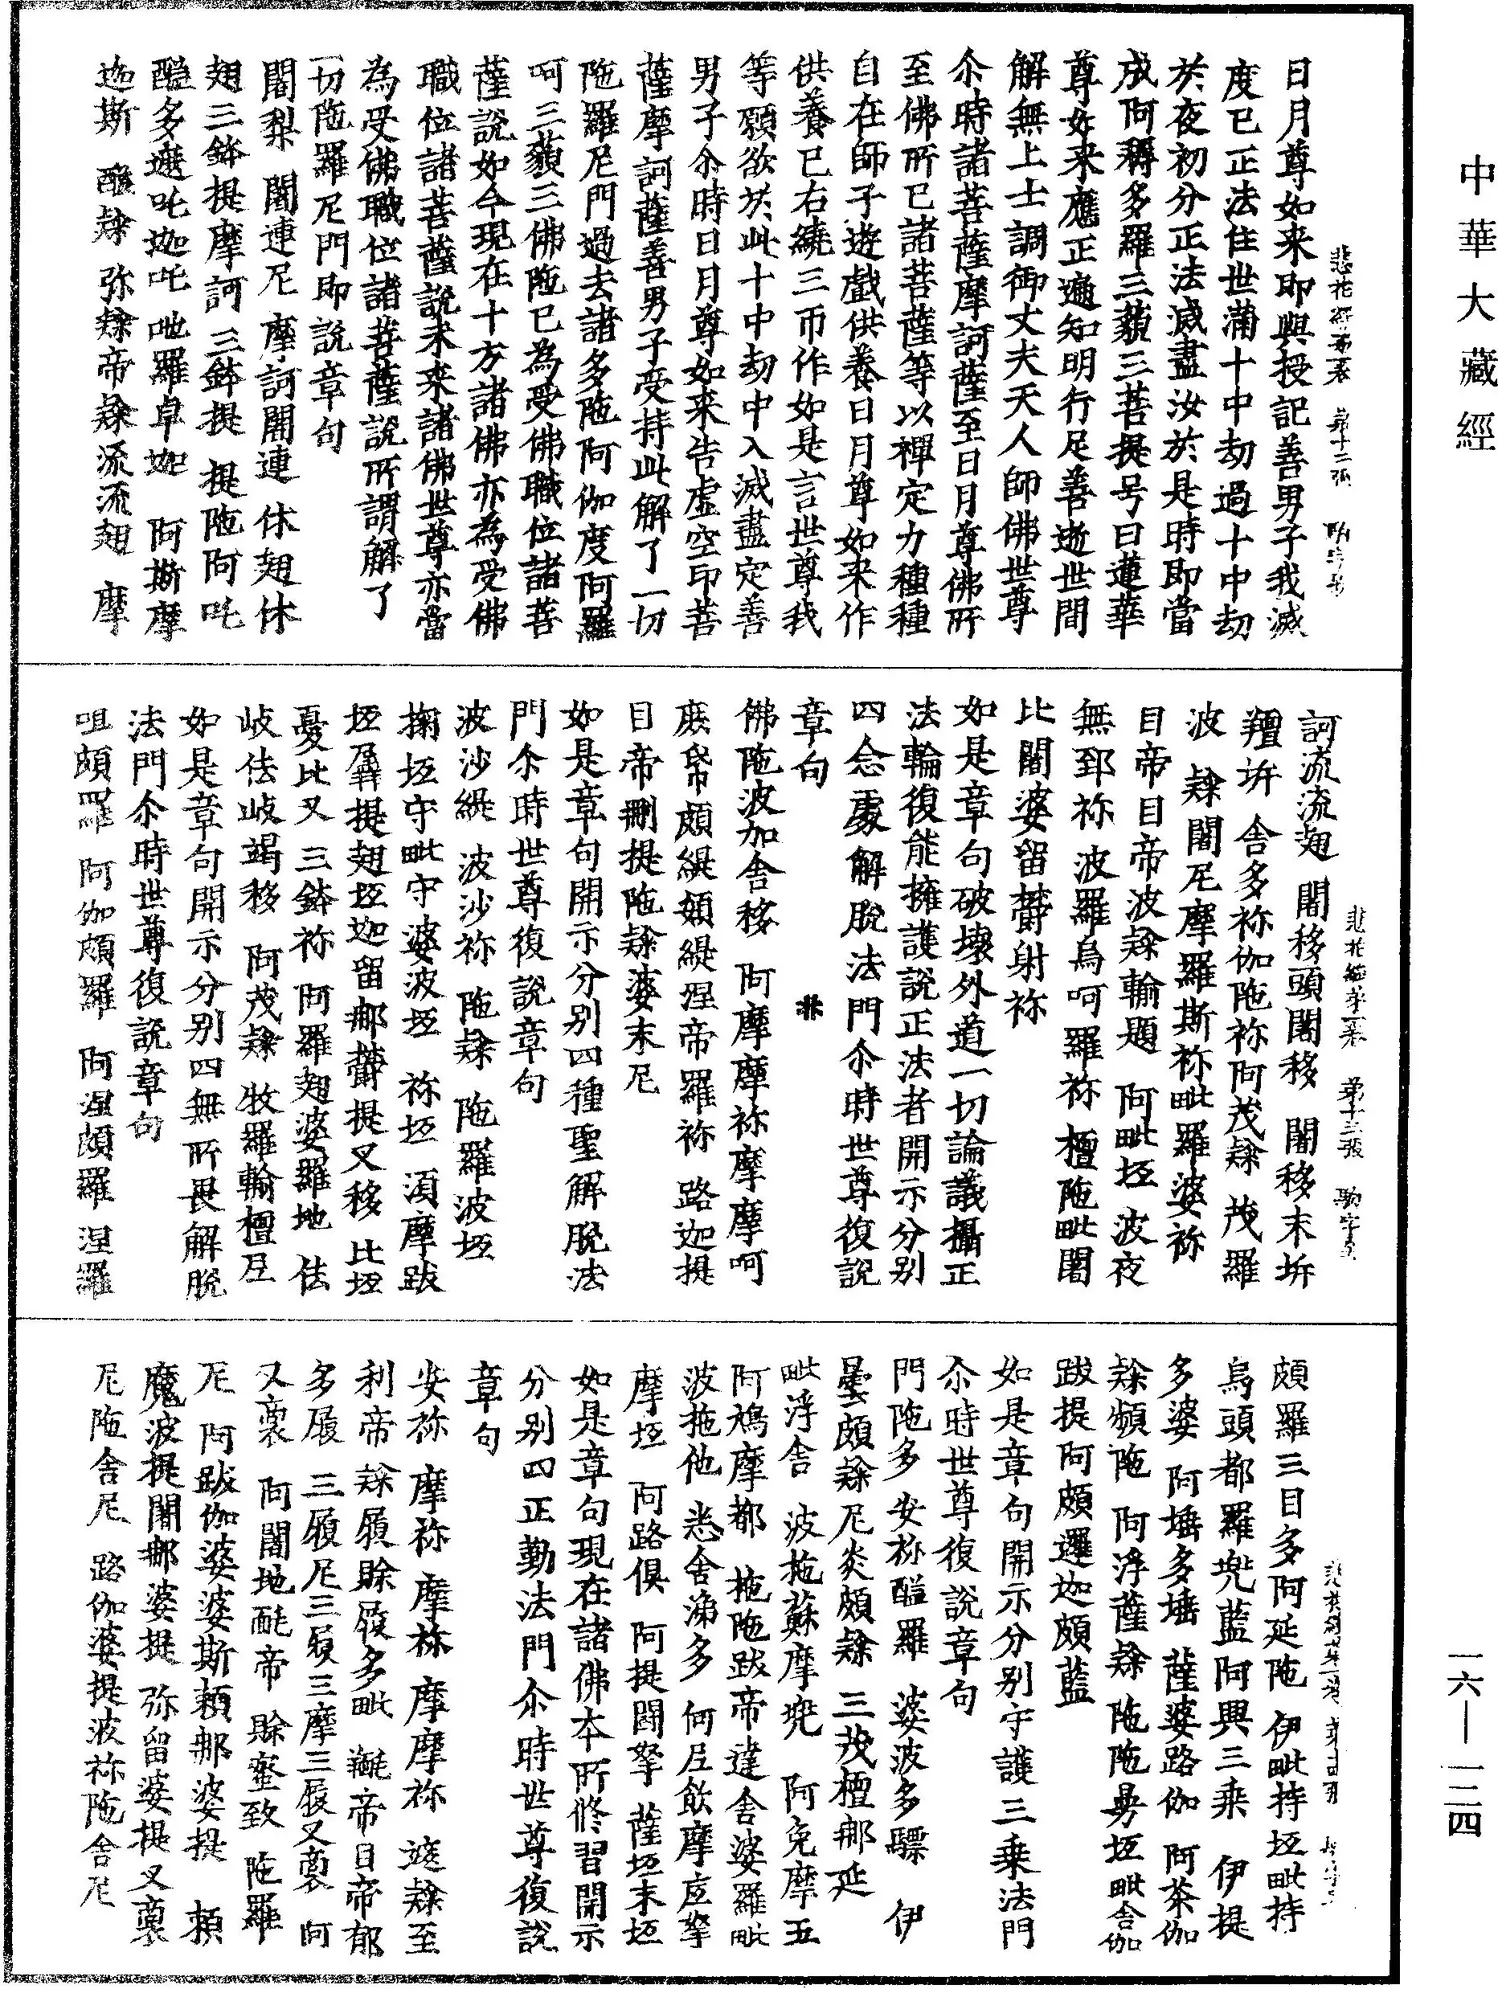 中華大藏經
日月尊如来即與授記善男子我滅
度已正法住世滿十中劫過十中劫
於夜初分正法滅盡汝於是時即當
成阿耨多羅三藐三菩提号曰蓮華
尊如来應正遍知明行足善逝世間
解無上士調御丈夫天人師佛世尊
尒時諸菩薩摩訶薩至日月尊佛所
至佛所已諸菩薩等以禪定力種種
自在師子遊戲供養日月尊如来作
供養已右繞三帀作如是言世尊我
等願欲於此十中劫中入滅盡定善
男子尒時日月尊如来告虛空印菩
薩摩訶薩善男子受持此解了一切
陁羅尼門過去諸多陁阿伽度阿羅
呵三藐三佛陁已為受佛職位諸菩
薩說如今現在十方諸佛亦為受佛
職位諸菩薩說未来諸佛世尊亦當
為受佛職位諸菩薩說所謂解了
一切陁羅尼門即說章句
闍梨 闍連尼 摩訶闍連 休翅休
翅三鉢提摩訶三鉢提 提陁阿吒
醯多遮吒迦吒吔羅卓迦 阿斯摩
迦斯 醯隸 弥隸帝隸流流翅 摩
悲花經第一卷 第十三張
訶流流翅 闍移頭闍移 闍移末坼
羶坼 舍多祢伽陁祢阿茂隸 茂羅
波 隸闍尼摩羅斯祢毗羅婆祢
目帝目帝波隸輸題 阿毗坻 波夜
無郅祢 波羅烏呵羅祢 檀陁毗闍
比闍婆留欝射祢
如是章句破壞外道一切論議攝正
法輪復能擁護說正法者開示分別
四念處解脫法門尒時世尊復說
章句
佛陁波加舍移 阿摩摩祢摩摩呵
庻帋頗緹頞緹涅帝羅祢 路迦提
目帝刪提陁隸婆末尼
如是章句開示分別四種聖解脫法
門尒時世尊復說章句
波沙緹 波沙祢 陁隸 陁羅波坻
掬坻守毗守婆波坻 祢坻 湏摩跋
坻羼提翅坻迦留那欝提叉移 比坻
憂比叉 三鉢祢 阿羅翅婆羅地 佉
岐佉岐竭移 阿茂隸 牧羅輸檀尼
如是章句開示分別四無所畏解脫
法門尒時世尊復說章句
咀頗羅 阿伽頗羅 阿涅頗羅 涅羅
頗羅三目多阿延陁 伊毗持坻毗持
烏頭都羅兜藍阿興三乗 伊提
多婆 阿埵多埵 薩婆路伽 阿荼伽
隸頻陁 阿浮薩隸 陁陁曼坻毗舍伽
跋提阿頗邏迦頗藍
如是章句開示分別守護三乗法門
尒時世尊復說章句
門陁多 安祢醯羅 婆波多驃 伊
曇頗隸尼炎頗隸 三茂檀那延
毗浮舍 波拖蘇摩兜 阿免摩五
阿鳩摩都 拖陁跋帝達舍婆羅毗
波拖他 悉舍渧多 何尼飲摩底拏
摩坻 阿路俱 阿提鬪拏 薩坻末坻
如是章句現在諸佛本所修習開示
分別四正勤法門尒時世尊復說
章句
安祢 摩祢 摩祢 摩摩祢 遮隸至
利帝 隸履賒履多毗 羝帝目帝郁
多履 三履尼三履三摩三履叉裔 阿
叉裔 阿闍地䣾帝 賒蜜致 陁羅
尼 阿跋伽婆婆斯頼那婆提 頼
魔波提闍那婆提 弥留婆提叉裔
尼陁舍尼 路伽婆提波祢陁舍尼
一六—一二四